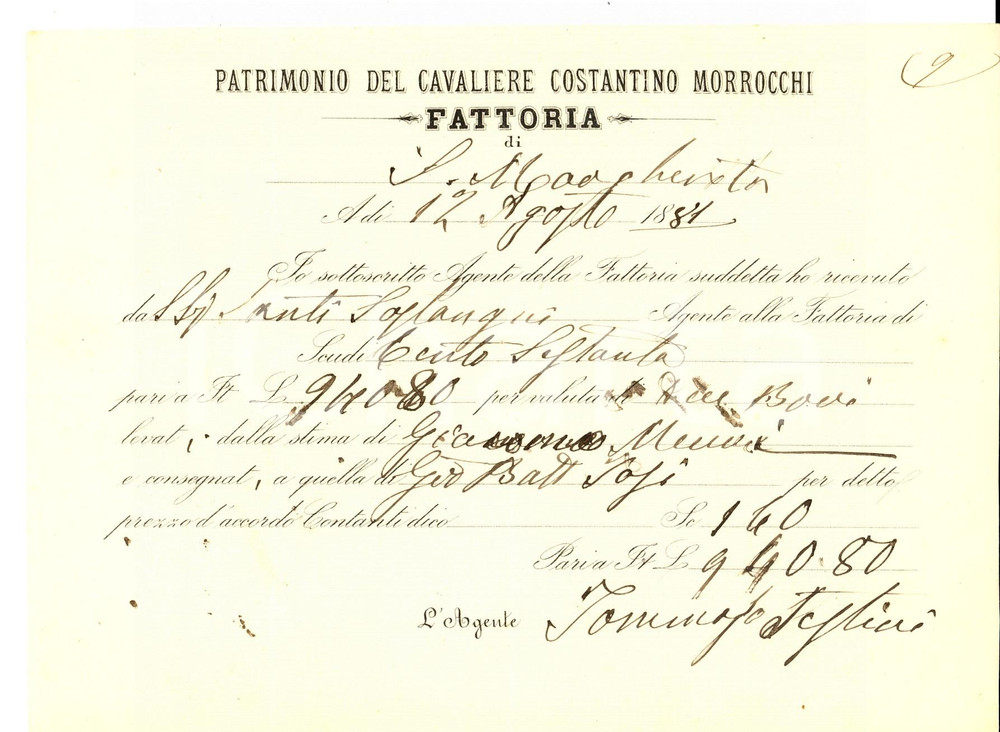 9
PATRIMONIO DEL CAVALIERE COSTANTINO MORROCCHI
FATTORIA
di
S. Margherita
A dì 12 Agosto 1881
Io sottoscritto Agente della Fattoria suddetta ho ricevuto
da Santi Agente alla Fattoria di
Scudi Cento Sessanta
pari a It L. 940 80 per valuta di Due Bovi
levati dalla stima di Giovanni
e consegnat, a quella di Gio Batt per detto
prezzo d'accordo Contanti dico Sc 160
Pari a It L 940.80
L'Agente Tommaso